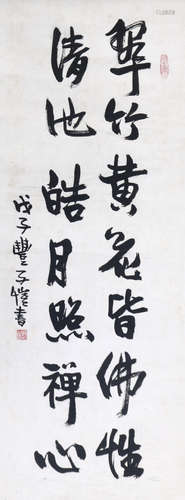 翠竹黄花皆佛性
清池皓月照禅心
戊子豐子愷書